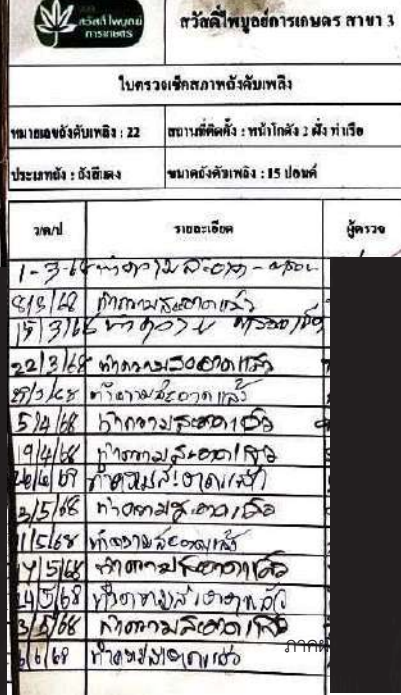 สวัสดิ์ไพบูลย์
การเกษตร
สวัสดิ์ไพบูลย์การเกษตร สาขา 3
ใบตรวจเช็กสภาพถังดับเพลิง
หมายเลขถังดับเพลิง : 22 สถานที่ติดตั้ง : หน้าโกดัง 2 ฝั่ง ท่าเรือ
ประเภทถัง : ถังสีแดง ขนาดถังดับเพลิง : 15 ปอนด์
ว/ด/ป รายละเอียด ผู้ตรวจ
1-3-68 ทำความสะอาด
8/3/68 ทำความสะอาดแล้ว
15/3/68
22/3/68 ทำความสะอาดแล้ว
29/3/68 ทำความสะอาดแล้ว
5/4/68 ทำความสะอาดแล้ว
19/4/68 ทำความสะอาดแล้ว
ทำความสะอาดแล้ว
3/5/68 ทำความสะอาดแล้ว
11/5/68 ทำความสะอาดแล้ว
17/5/68 ทำความสะอาดแล้ว
24/5/68 ทำความสะอาดแล้ว
ทำความสะอาดแล้ว
ทำความสะอาดแล้ว